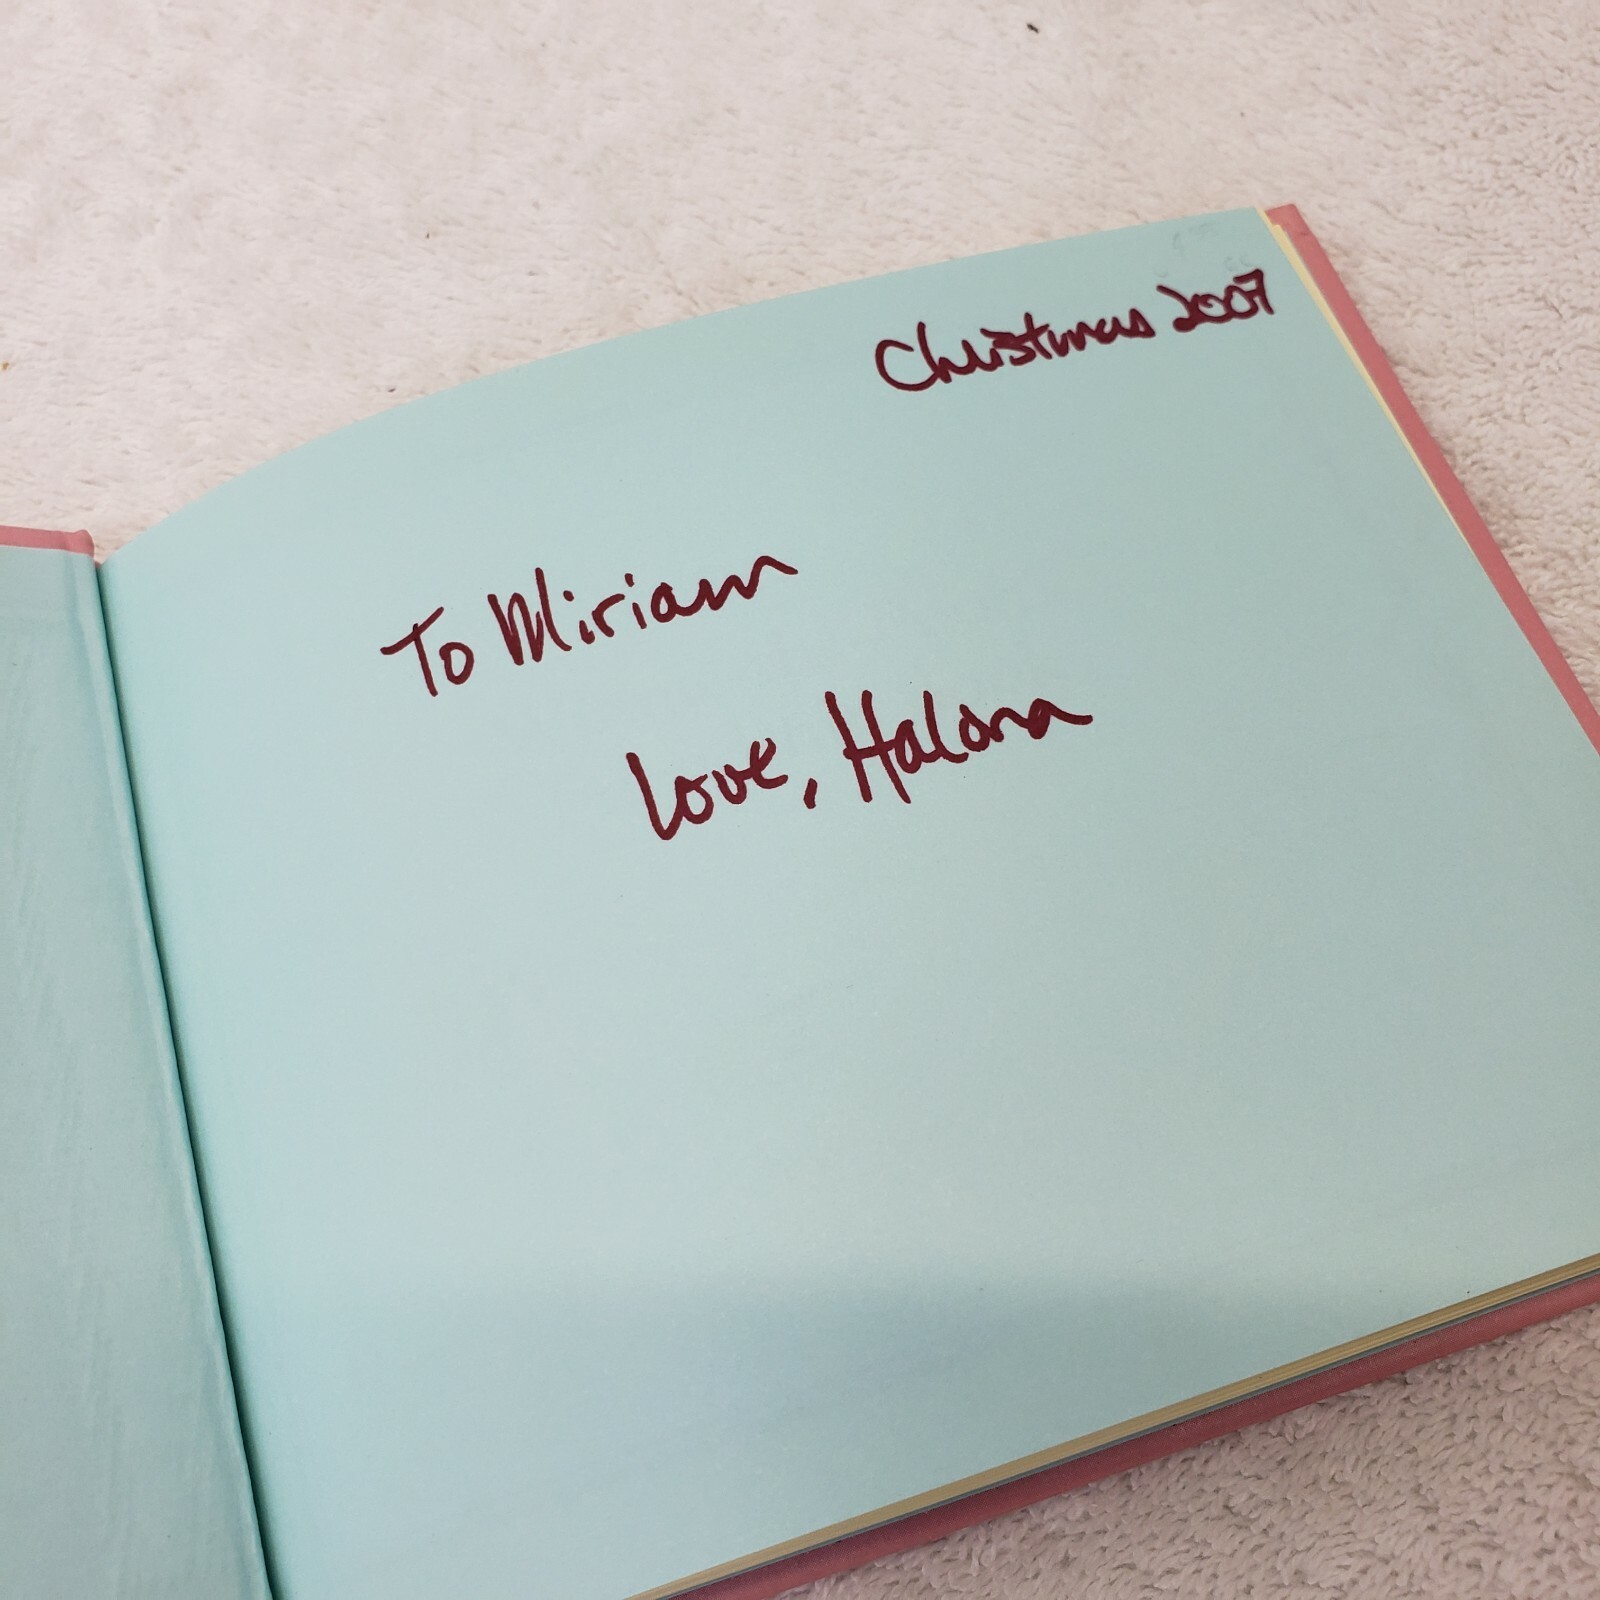 Christmas 2007
To Miriam
Love, Halona